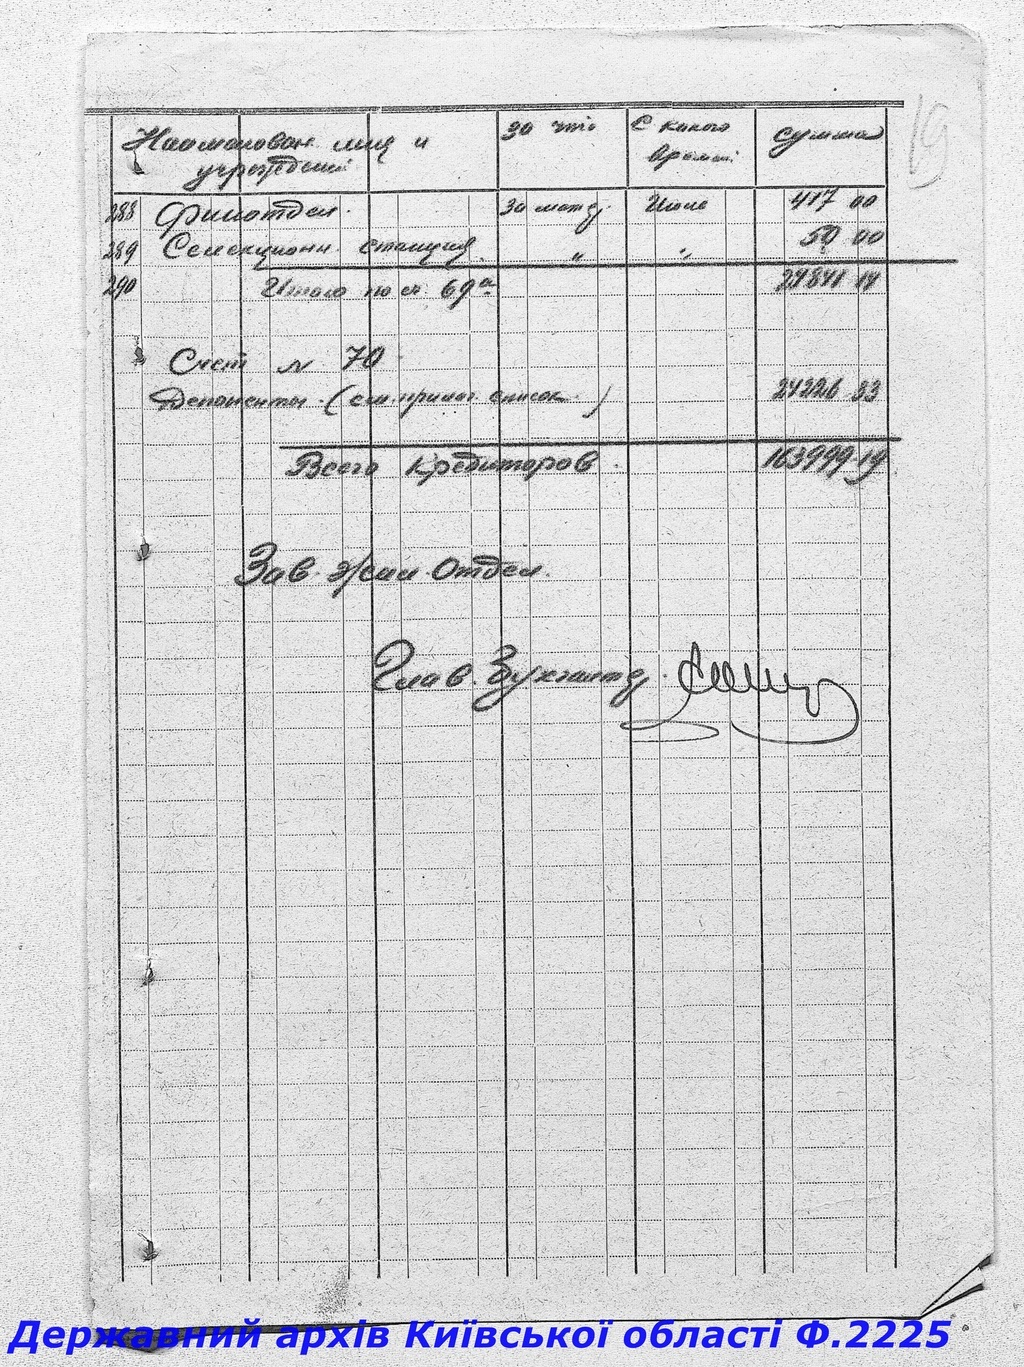 19
Наименован. лица и учреждений За что С какого времени Сумма
288 Финотдел. За матер. Июль 417 00
289 Селекционн. станция. " " 50 00
290 Итого по сч. 69а 14
Счет N 70
Депоненты (см. прилаг. список.) 24226 33
Всего кредиторов. 163999.19
Зав. Жил Отдел.
Глав. Бухгалтер.
Державний архів Київської області Ф.2225